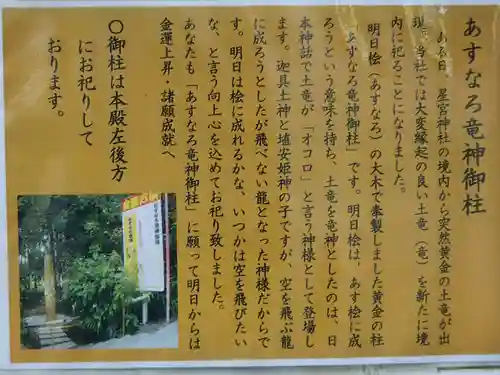 あすなろ竜神御柱
ある日、星宮神社の境内から突然黄金の土竜が出
現。当社では大変縁起の良い土竜(竜)を新たに境
内に祀ることになりました。
明日桧(あすなろ)の大木で奉製しました黄金の柱
「あすなろ竜神御柱」です。明日桧は、あす桧に成
ろうという意味を持ち、土竜を竜神としたのは、日
本神話で土竜が「オコロ」と言う神様として登場し
ます。迦具土神と埴安姫神の子ですが、空を飛ぶ龍
に成ろうとしたが飛べない龍となった神様だからで
す。明日は桧に成れるかな、いつかは空を飛びたい
な、と言う向上心を込めてお祀り致しました。
あなたも「あすなろ竜神御柱」に願って明日からは
金運上昇・諸願成就へ
〇御柱は本殿左後方
にお祀りして
おります。